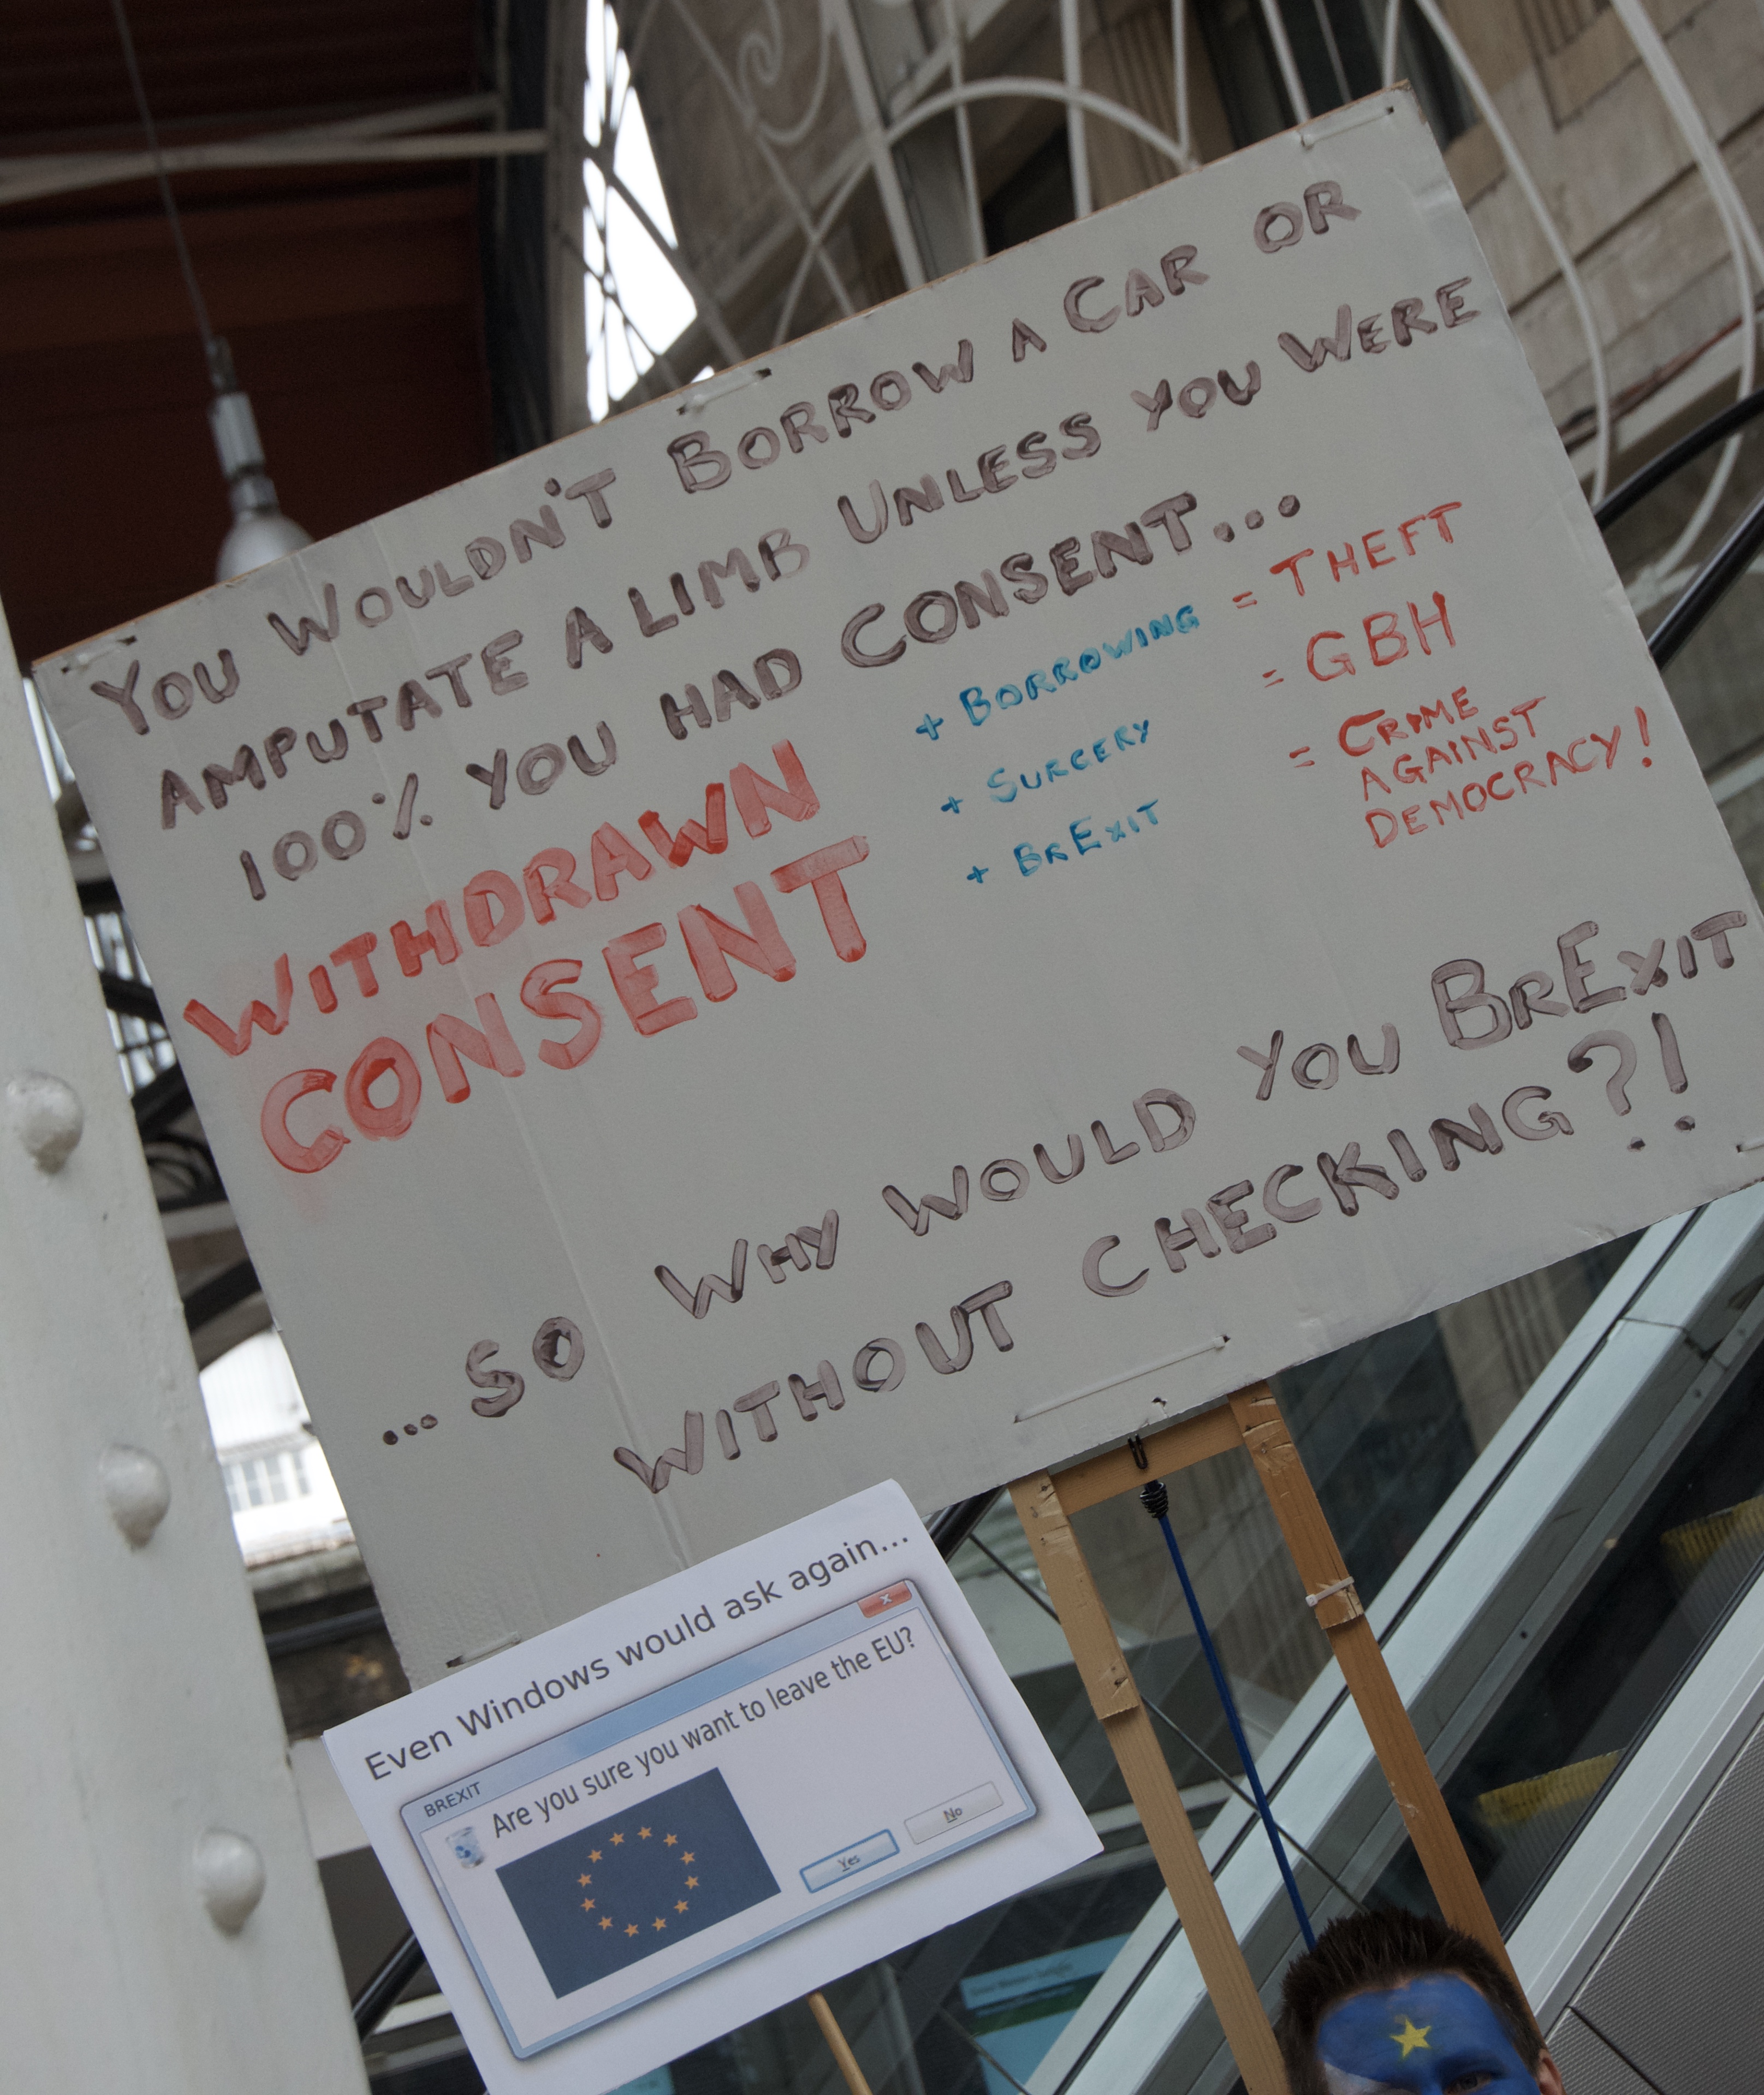 YOU WOULDN'T BORROW A CAR OR
AMPUTATE A LIMB UNLESS YOU WERE
100% YOU HAD CONSENT...
WITHDRAWN
CONSENT
+ BORROWING = THEFT
+ SURGERY = GBH
+ BREXIT = CRIME
AGAINST
DEMOCRACY!
...SO WHY WOULD YOU BREXIT
WITHOUT CHECKING?!
Even Windows would ask again...
BREXIT
Are you sure you want to leave the EU?
Yes No